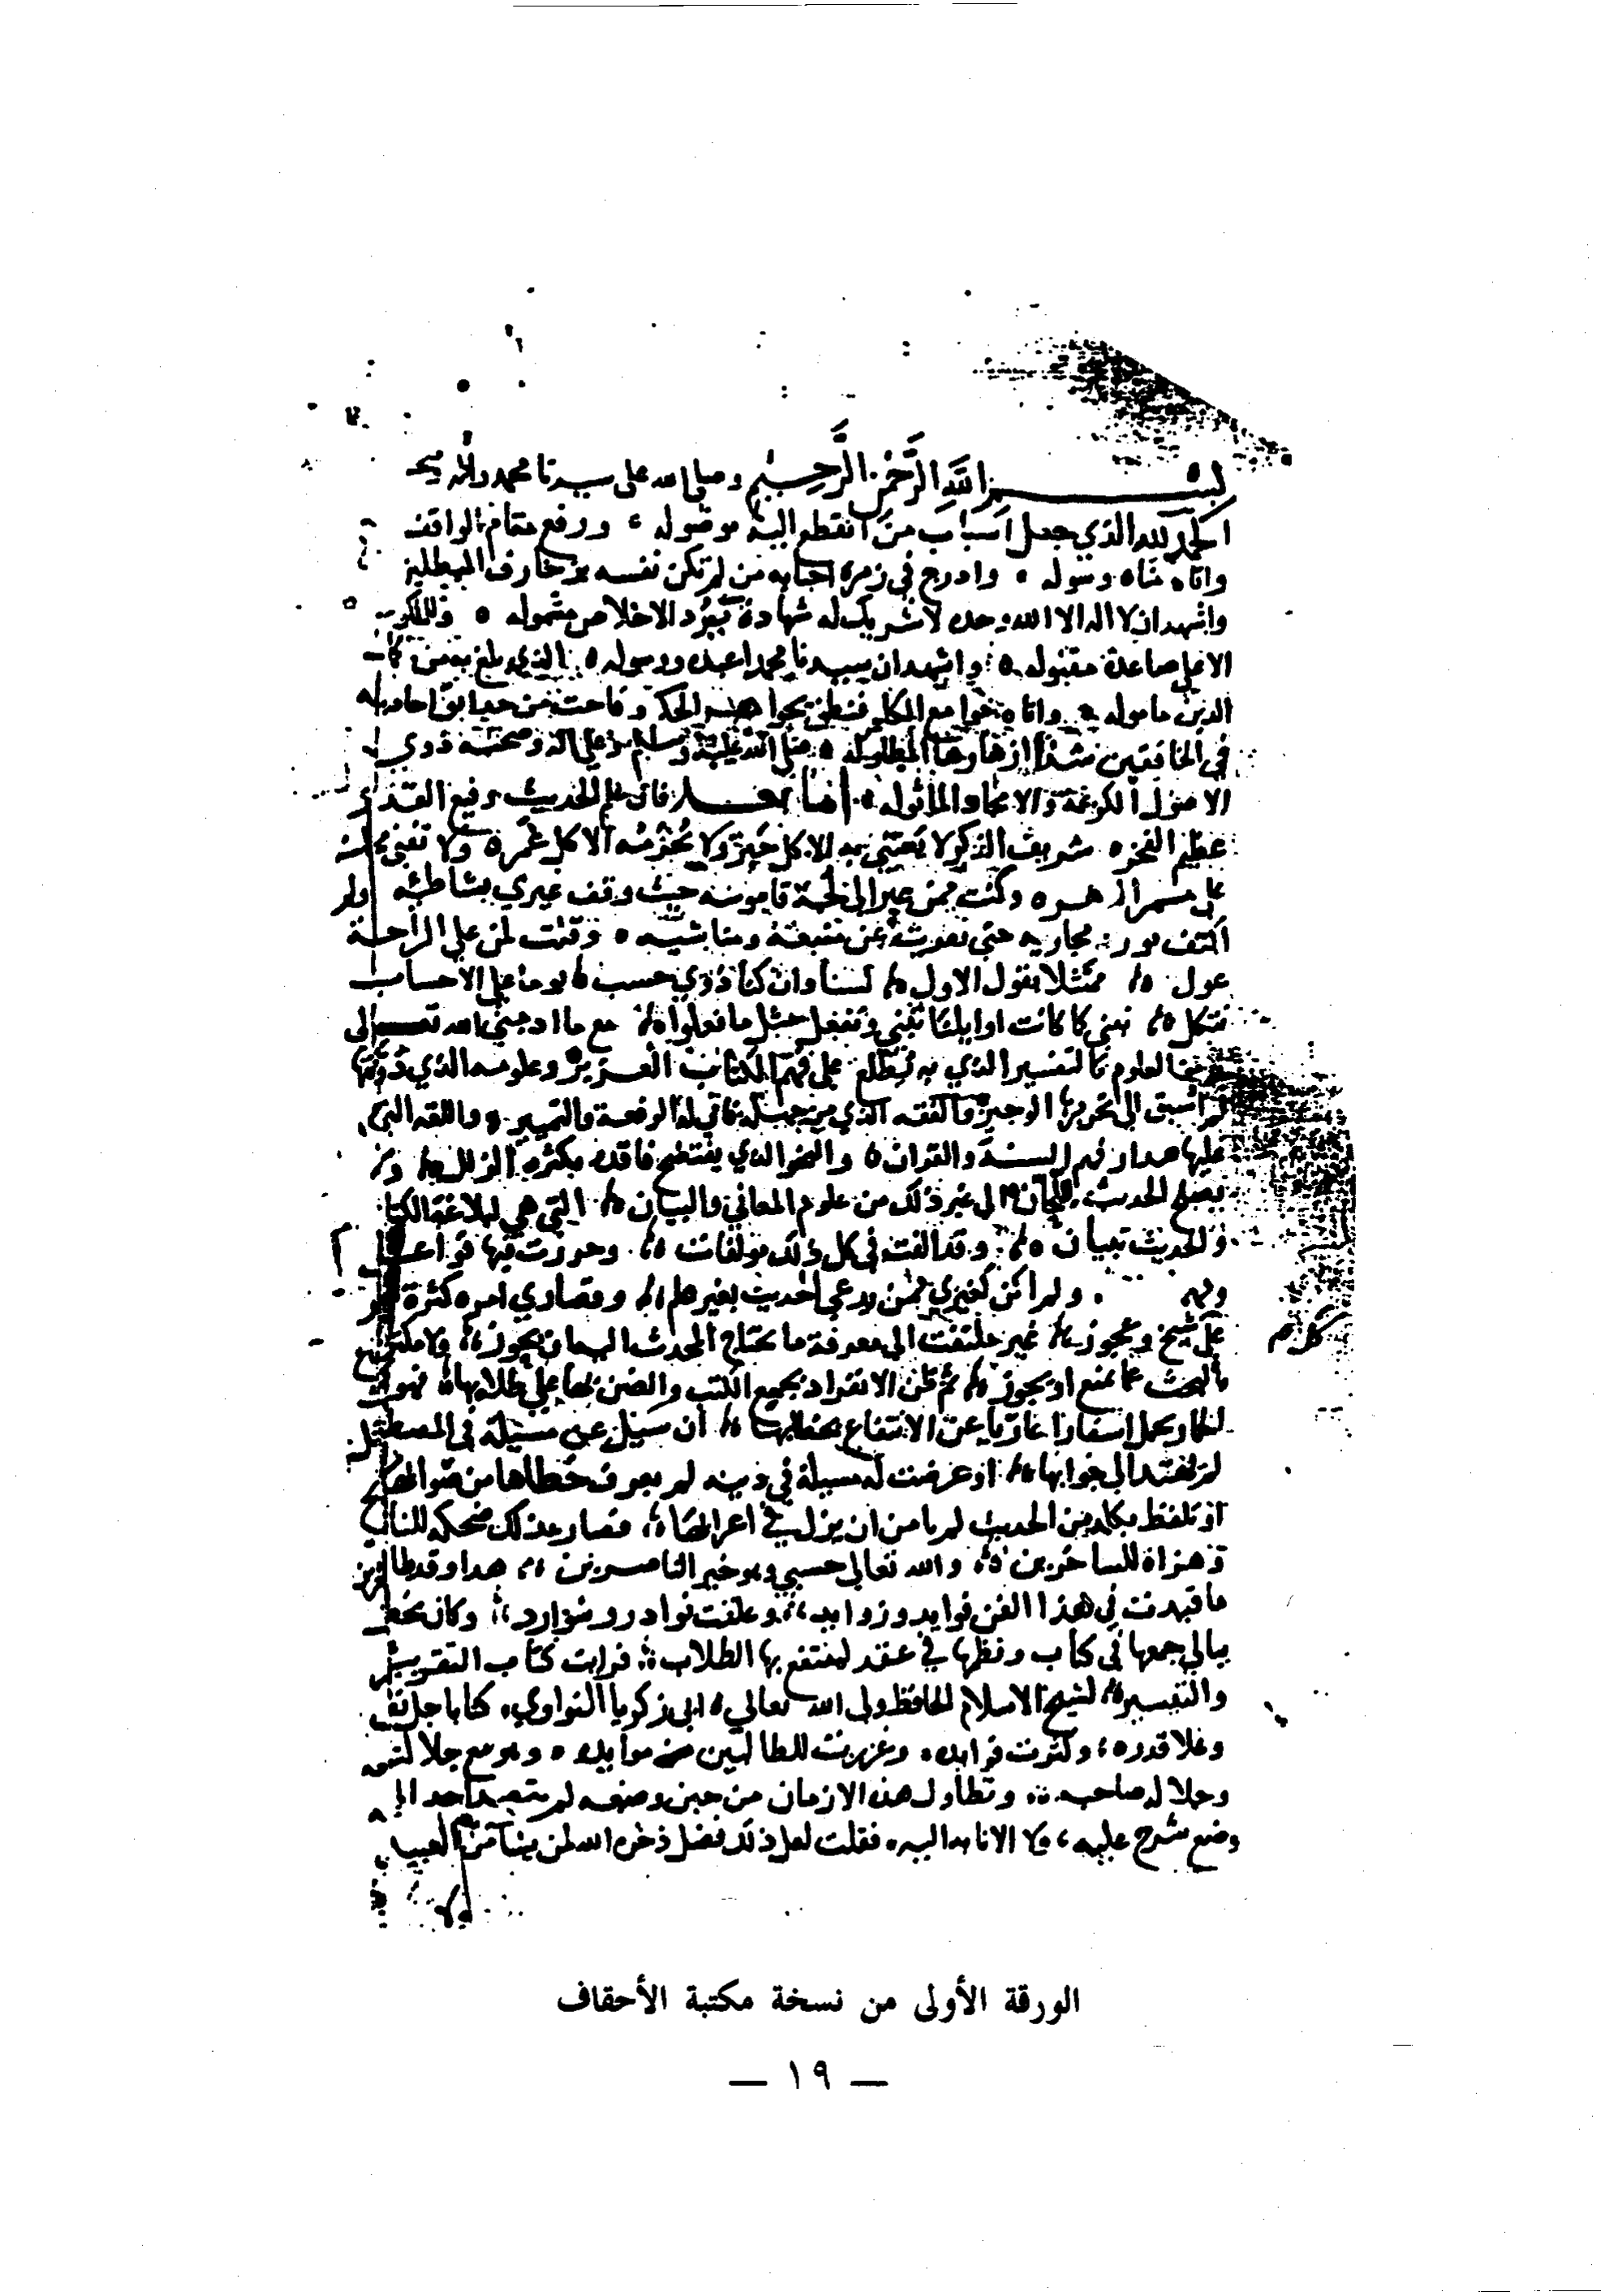 بسم الله الرحمن الرحيم وصلى الله على سيدنا محمد واله
الحمد لله الذي جعل اسباب من انقطع اليه موصوله ورفع مقام الواقف
واتاه مناه وسوله وادرج في زمرة احبابه من لم تكن نفسه بزخارف المبطلين
واشهد ان لا اله الا الله وحده لا شريك له شهادة ببرد الاخلاص مشموله وللملكوت
الاعلى صاعدة مقبوله واشهد ان سيدنا محمدا عبده ورسوله الذي بلغ به من
الدين ماموله واتاه جوامع الكلم فنطق بجواهر الحكم وفاحت من حدايق احاديثه
في الخافقين شذا ازهارها المطلوله صلى الله عليه وسلم وعلى اله وصحبه ذوي
الاصول الكريمة والامجاد الماثوله اما بعد فان علم الحديث رفيع القدر
عظيم الفخر شريف الذكر لا يعتني به الا كل حبر ولا يحرمه الا كل غمر ولا تفنى
على ممر الدهر وكنت ممن عبر الى لجة قاموسه حيث وقف غيري بشاطئه ولم
اكتف بورد مجاريه حتى بقرت عن منبعه ومناشيه وقلت لمن على الراحة
عول متمثلا بقول الاول لسنا وان كنا ذوي حسب يوما على الاحساب
نتكل نبني كما كانت اوايلنا تبني ونفعل مثل ما فعلوا مع ما امدني الله تعالى
العلوم كالتفسير الذي به يطلع على فهم الكتاب العزيز وعلومه الذي دونتها
اسبق الى تحريرها الوجيز والفقه الذي من جهله فاني له الرفعة والتمييز واللغة التي
عليها مدار فهم السنة والقران والنحو الذي يفتضح فاقده بكثرة الزلل ولا
يصلح الحديث للحان الى غير ذلك من علوم المعاني والبيان التي هي لبلاغة الكتاب
والحديث تبيان وقد الفت في كل ذلك مولفات وحررت فيها قواعد
ولم اكن كغيري ممن يدعي الحديث بغير علم وقصارى امره كثرة
كلام
على شيخ وعجوز غير ملتفت الى معرفة ما يحتاج المحدث اليه ان يجوز ولا مكترث
بالبحث عما يمنع او يجوز ثم ظن الانفراد بجميع الكتب والضن بها على طلابها فهو
كالحمار يحمل اسفارا عاريا عن الانتفاع بخطابها ان سيل عن مسيلة في المصطلح
لم يهتد الى جوابها او عرضت له مسيلة في دينه لم يعرف خطاها من صوابها
او تلفظ بكلمة من الحديث لم يامن ان يزل في اعرابها فصار بذلك ضحكة للناظرين
وهزاة للساخرين والله تعالى حسبي وهو خير الناصرين هذا وقد طال
ما قيدت في هذا الفن فوايد وزوايد وعلقت نوادر وشوارد وكان يخطر
ببالي جمعها في كتاب ونظمها في عقد لينتفع بها الطلاب فرايت كتاب التقريب
والتيسير لشيخ الاسلام الحافظ ولي الله تعالى ابي زكريا النواوي كتابا جل نفعه
وعلا قدره وكثرت فوايده وغزرت للطالبين موايده وهو مع جلالته
وجلالة صاحبه وتطاول هذه الازمان من حين وضعه لم يتصد احد الى
وضع شرح عليه ولا الانابة اليه فقلت لعل ذلك فضل ذخره الله لمن يشا من العبيد
ولا
الورقة الأولى من نسخة مكتبة الأحقاف
— ١٩ —